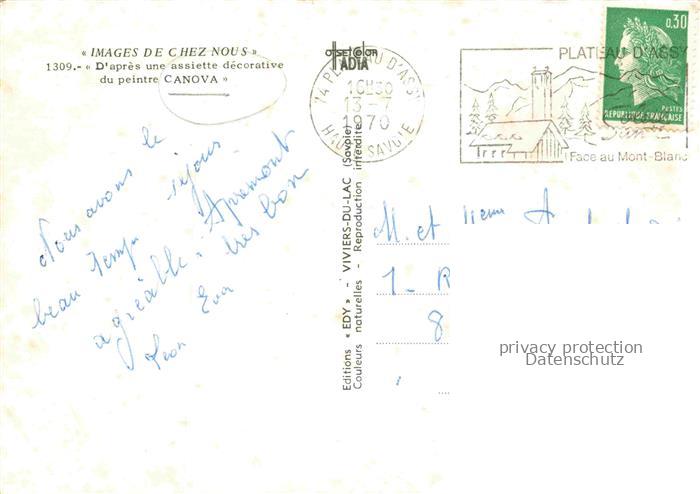 « IMAGES DE CHEZ NOUS »
1309.- « D'après une assiette décorative
du peintre CANOVA »
OFFSET COLOR
IADIA
74 PLATEAU D'ASSY
10H30
13-7
1970
HAUTE SAVOIE
PLATEAU D'ASSY
Face au Mont-Blanc
0,30
POSTES
REPUBLIQUE FRANÇAISE
Nous avons le
beau temps séjour
agréable. Apremont
très bon
Léon Eva
Editions « EDY » - VIVIERS-DU-LAC (Savoie)
Couleurs naturelles - Reproduction interdite
M. et
1 - R
8
privacy protection
Datenschutz